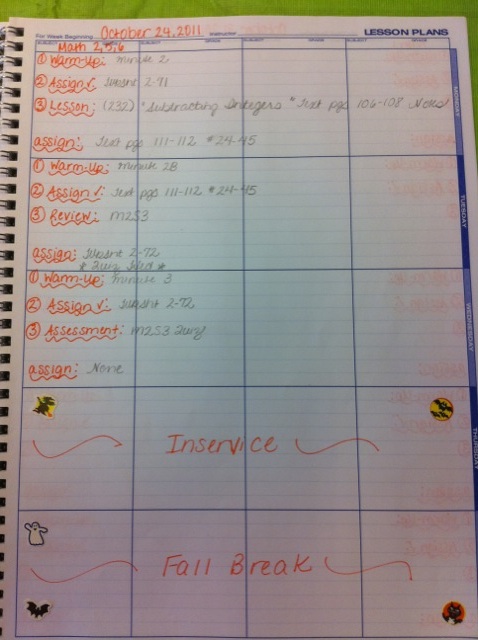 For Week Beginning October 24, 2011 Instructor LESSON PLANS
SUBJECT SUBJECT GRADE SUBJECT GRADE SUBJECT GRADE
Math 2,5,6
① Warm-Up: minute 2
② Assign √: Wksht 2-71
③ Lesson: (232) "Subtracting Integers" Text pgs 106-108 Notes
assign: Text pgs 111-112 #24-45
MONDAY
① Warm-Up: minute 2B
② Assign √: Text pgs 111-112 #24-45
③ Review: m2S3
assign: Wksht 2-72
* Quiz Wed *
TUESDAY
① Warm-Up: minute 3
② Assign √: Wksht 2-72
③ Assessment: m2S3 Quiz
assign: None
WEDNESDAY
Inservice
THURSDAY
Fall Break